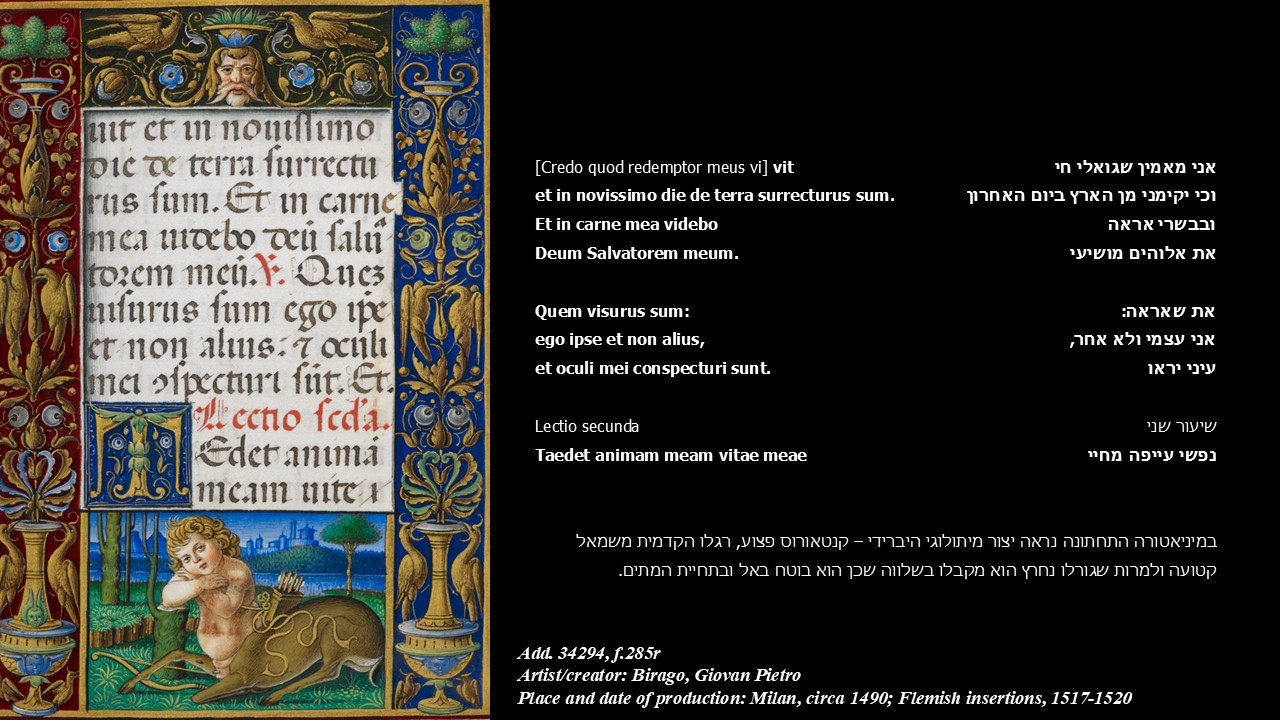 uit et in nouissimo
die de terra surrectu
rus sum. Et in carne
mea uidebo deū salu
torem meū. V. Quez
uisurus sum ego ipe
et non alius. ⁊ oculi
mei ꝯspecturi sūt. Et.
Lectio scda.
Tedet animā
meam uite
[Credo quod redemptor meus vi] vit
et in novissimo die de terra surrecturus sum.
Et in carne mea videbo
Deum Salvatorem meum.
Quem visurus sum:
ego ipse et non alius,
et oculi mei conspecturi sunt.
Lectio secunda
Taedet animam meam vitae meae
אני מאמין שגואלי חי
וכי יקימני מן הארץ ביום האחרון
ובבשרי אראה
את אלוהים מושיעי
את שאראה:
אני עצמי ולא אחר,
עיני יראו
שיעור שני
נפשי עייפה מחיי
במיניאטורה התחתונה נראה יצור מיתולוגי היברידי – קנטאורוס פצוע, רגלו הקדמית משמאל
קטועה ולמרות שגורלו נחרץ הוא מקבלו בשלווה שכן הוא בוטח באל ובתחיית המתים.
Add. 34294, f.285r
Artist/creator: Birago, Giovan Pietro
Place and date of production: Milan, circa 1490; Flemish insertions, 1517-1520